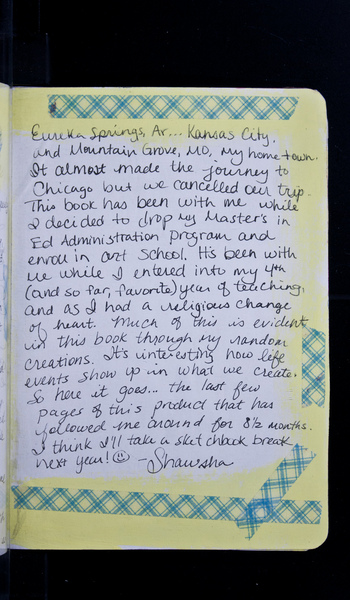 Eureka Springs, Ar... Kansas City,
and Mountain Grove, MO, my home town.
It almost made the journey to
Chicago but we cancelled our trip.
This book has been with me while
I decided to drop my Master's in
Ed Administration Program and
enroll in art school. It's been with
me while I entered into my 4th
(and so far, favorite) year of teaching,
and as I had a religious change
of heart. Much of this is evident
in this book through my random
creations. It's interesting how life
events show up in what we create.
So here it goes... the last few
pages of this product that has
followed me around for 8½ months.
I think I'll take a sketchbook break
next year! ☺ -Shawsha